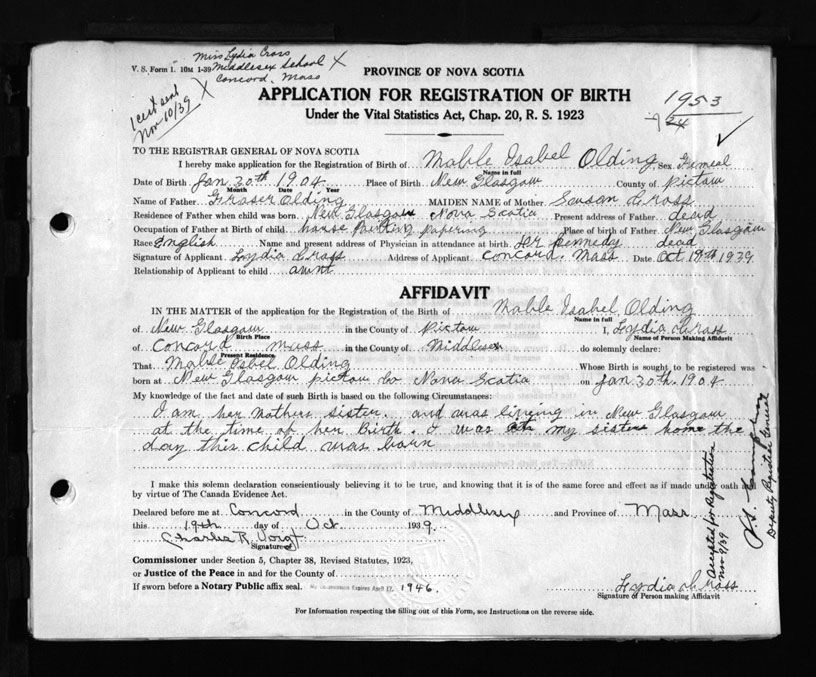 Miss Lydia Cross
V. S. Form 1. 10M 1-39 Middlesex School X
Concord, Mass
X
1 cert sent
Nov 10/39
PROVINCE OF NOVA SCOTIA
APPLICATION FOR REGISTRATION OF BIRTH
Under the Vital Statistics Act, Chap. 20, R. S. 1923
1953
TO THE REGISTRAR GENERAL OF NOVA SCOTIA
I hereby make application for the Registration of Birth of Mable Isabel Olding Sex Femeal
Name in full
Date of Birth Jan 30th 1904 Place of Birth New Glasgow County of Pictou
Month Date Year
Name of Father Fraser Olding MAIDEN NAME of Mother Susan Cross
Residence of Father when child was born New Glasgow Nova Scotia Present address of Father dead
Occupation of Father at Birth of child house Painting papering Place of birth of Father New Glasgow
Race English Name and present address of Physician in attendance at birth Dr Kennedy dead
Signature of Applicant Lydia Cross Address of Applicant Concord, Mass Date Oct 19th 1939
Relationship of Applicant to child aunt
AFFIDAVIT
IN THE MATTER of the application for the Registration of the Birth of Mable Isabel Olding
Name in full
of New Glasgow in the County of Pictou I, Lydia Cross
Birth Place Name of Person Making Affidavit
of Concord Mass in the County of Middlesex do solemnly declare:
Present Residence
That Mable Isbel Olding Whose Birth is sought to be registered was
born at New Glasgow pictou Co Nova Scotia on Jan 30th 1904
My knowledge of the fact and date of such Birth is based on the following Circumstances:
I am her Mothers sister. and was living in New Glasgow
at the time of her Birth. I was at my sisters home the
day this child was born
I make this solemn declaration conscientiously believing it to be true, and knowing that it is of the same force and effect as if made under oath and
by virtue of The Canada Evidence Act.
Declared before me at Concord in the County of Middlesex and Province of Mass
this 19th day of Oct 1939.
Charles R. Voigt
Signature of
Commissioner under Section 5, Chapter 38, Revised Statutes, 1923,
or Justice of the Peace in and for the County of
If sworn before a Notary Public affix seal. My Commission Expires April 17, 1946.
Lydia Cross
Signature of Person making Affidavit
For Information respecting the filling out of this Form, see Instructions on the reverse side.
Accepted for Registration
Nov 9/39
Deputy Registrar General